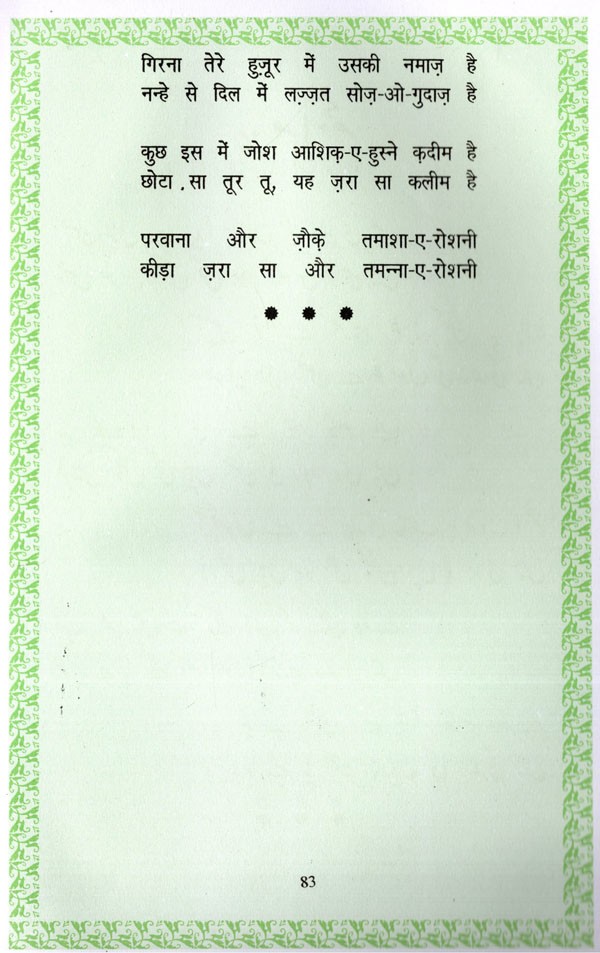 गिरना तेरे हुज़ूर में उसकी नमाज़ है
नन्हे से दिल में लज़्ज़त सोज़-ओ-गुदाज़ है
कुछ इस में जोश आशिक़-ए-हुस्ने क़दीम है
छोटा सा तूर तू, यह ज़रा सा कलीम है
परवाना और ज़ौक़े तमाशा-ए-रोशनी
कीड़ा ज़रा सा और तमन्ना-ए-रोशनी
83